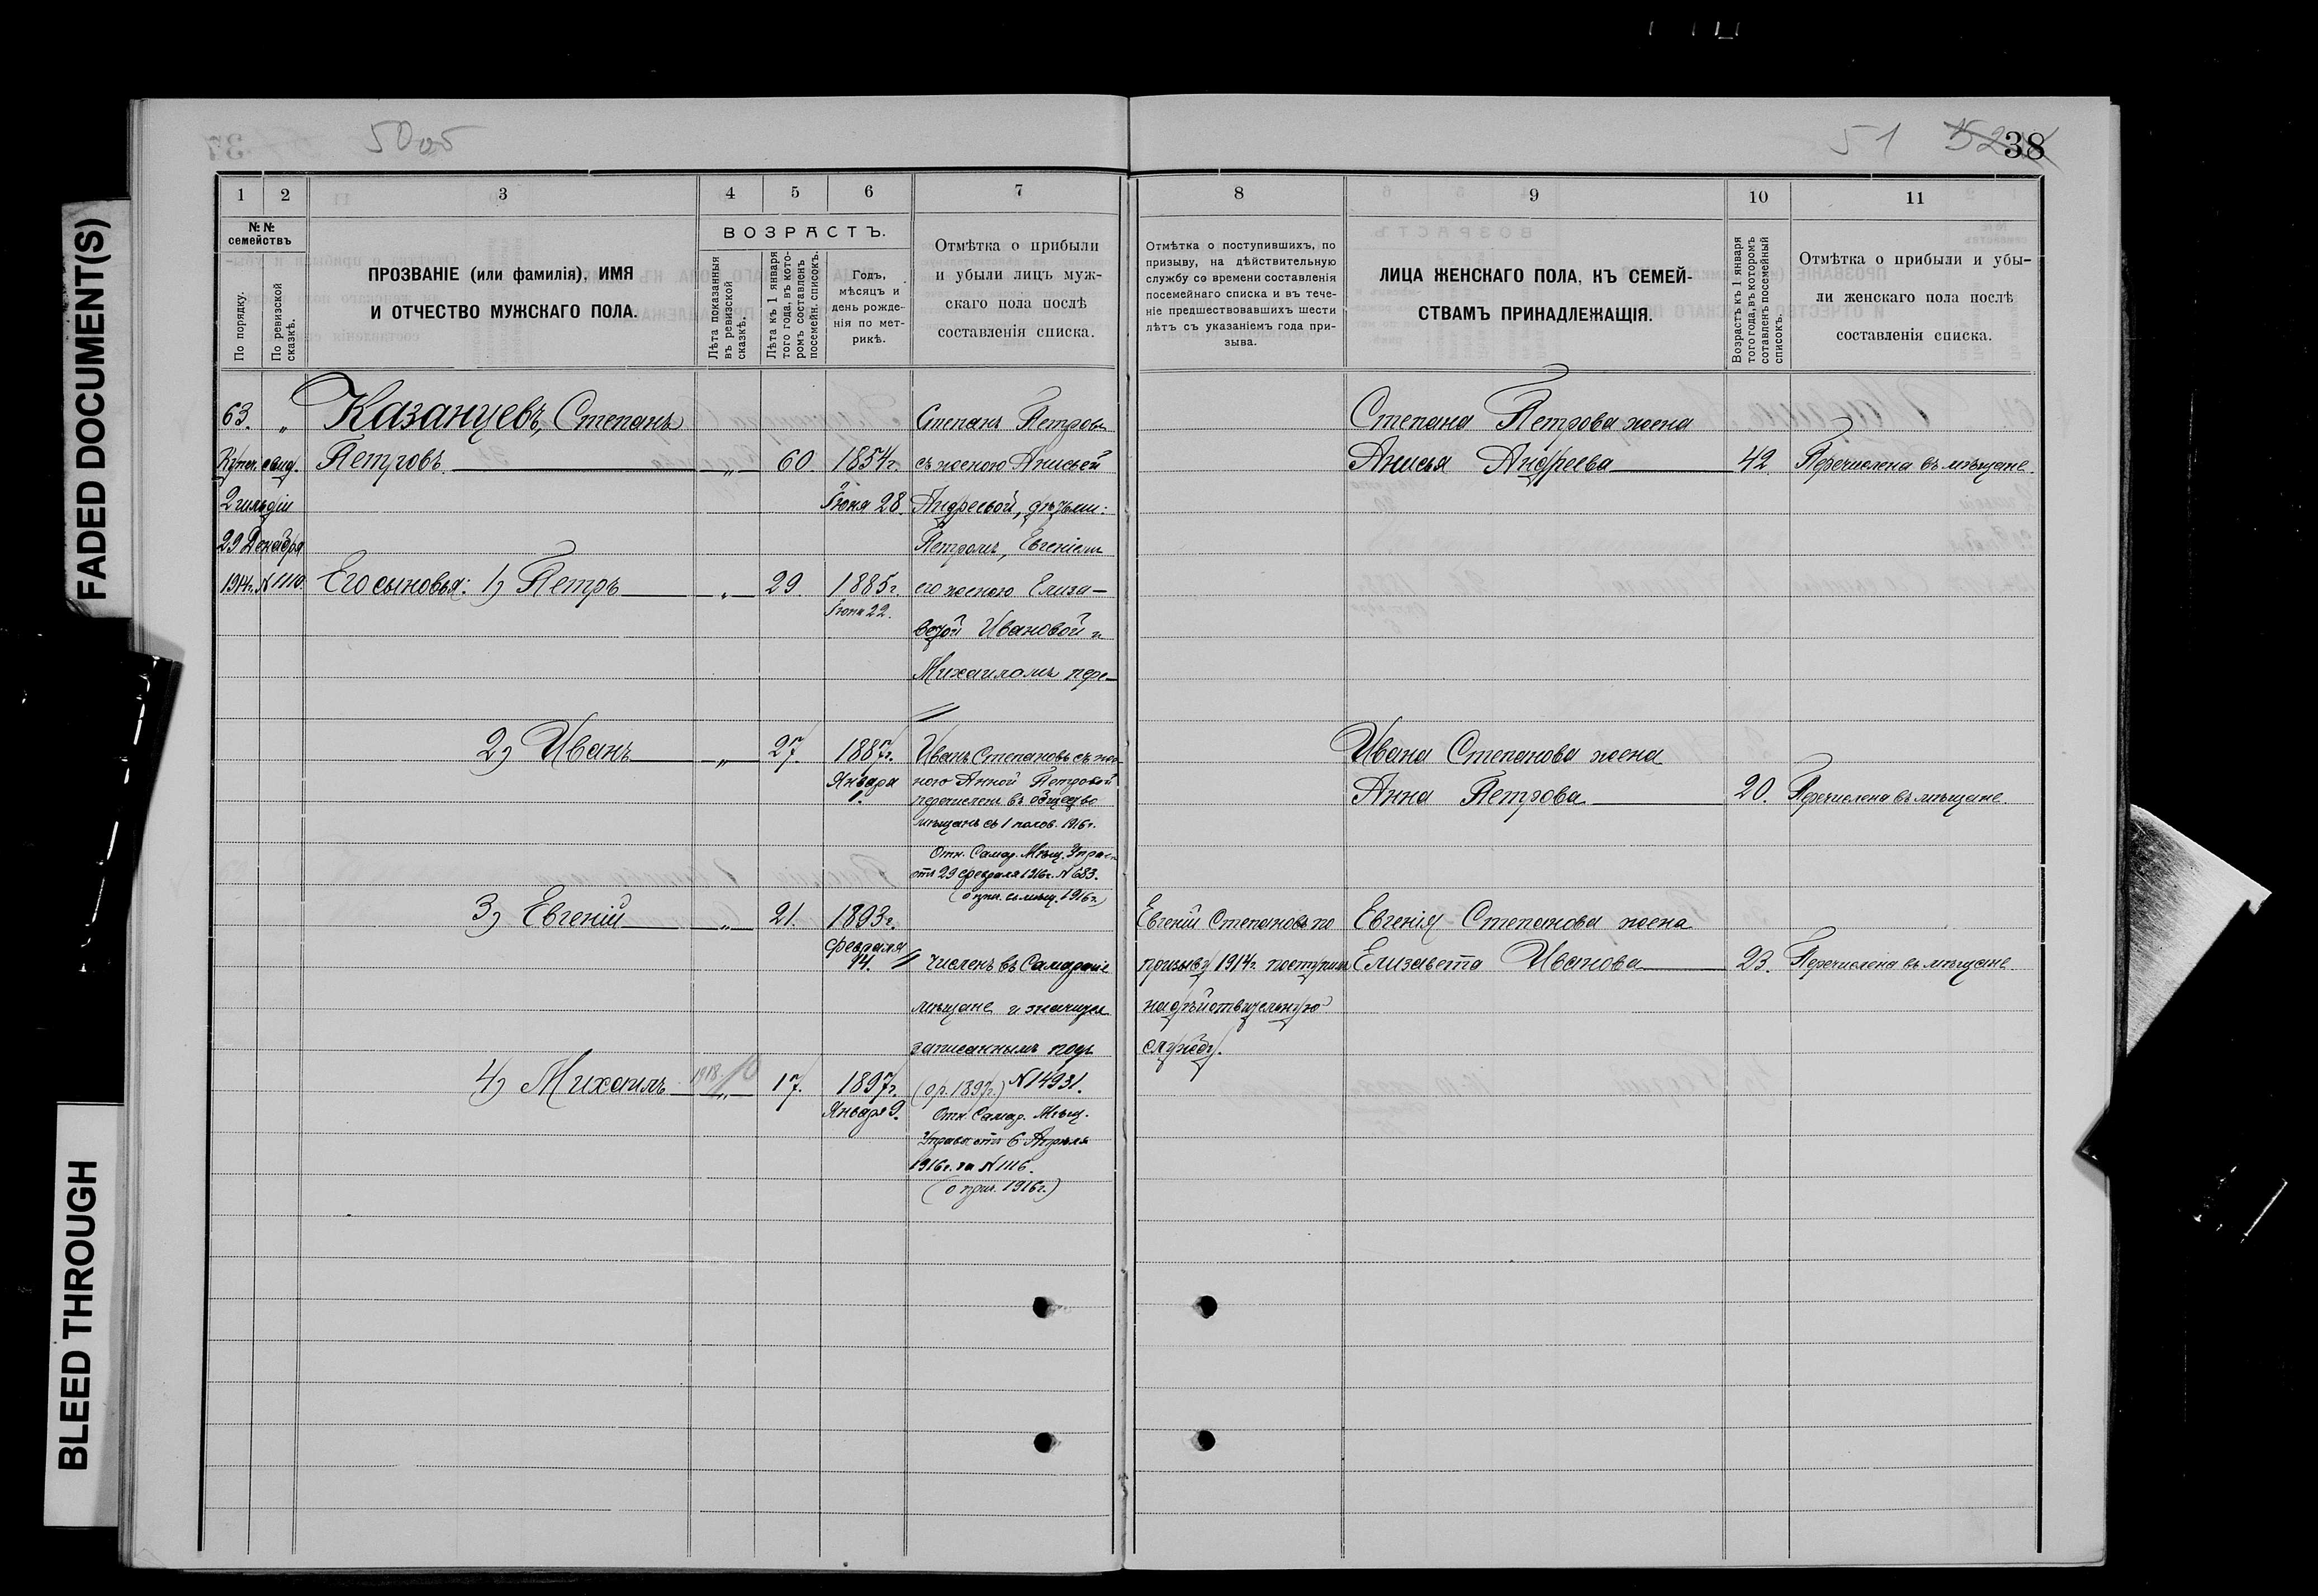 FADED DOCUMENT(S)
BLEED THROUGH
50об
51
52
38
1
2
3
4
5
6
7
№№
семействъ
По порядку.
По ревизской
сказкѣ.
ПРОЗВАНІЕ (или фамилія), ИМЯ
И ОТЧЕСТВО МУЖСКАГО ПОЛА.
ВОЗРАСТЪ.
Лѣта показанныя
въ ревизской
сказкѣ.
Лѣта къ 1 января
того года, въ кото-
ромъ составленъ
посемейн. списокъ.
Годъ,
мѣсяцъ и
день рожде-
нія по мет-
рикѣ.
Отмѣтка о прибыли
и убыли лицъ муж-
скаго пола послѣ
составленія списка.
63. „ Казанцевъ, Степанъ
Петровъ „ 60 1854 г.
Іюня 28.
Купеч. свид.
2 гильдіи
29 Декабря
1914 г. № 1110.
Степанъ Петровъ
съ женою Анисьей
Андреевой, дѣтьми:
Петромъ, Евгеніемъ
его женою Елиза-
ветой Ивановой и
Михаиломъ пере-
Его сыновья: 1) Петръ „ 29. 1885 г.
Іюня 22.
2) Иванъ „ 27. 1887 г.
Января
1.
Иванъ Степановъ съ же-
ною Анной Петровой
перечисленъ въ общество
мѣщанъ съ 1 полов. 1916 г.
Отн. Самар. Мѣщ. Управ.
отъ 29 февраля 1916 г. № 683.
3) Евгеній „ 21. 1893 г.
февраля
14.
// численъ въ Самарскіе
мѣщане и значится
записаннымъ подъ
(ор. 1897 г.) № 14931.
Отн. Самар. Мѣщ.
Управы отъ 6 Апрѣля
1916 г. за № 1116.
(о прич. 1916 г.)
4) Михаилъ 1918 10 „ 17. 1897 г.
Января 9.
8
9
10
11
Отмѣтка о поступившихъ, по
призыву, на дѣйствительную
службу со времени составленія
посемейнаго списка и въ тече-
ніе предшествовавшихъ шести
лѣтъ съ указаніемъ года при-
зыва.
ЛИЦА ЖЕНСКАГО ПОЛА, КЪ СЕМЕЙ-
СТВАМЪ ПРИНАДЛЕЖАЩІЯ.
Возрастъ къ 1 января
того года, въ которомъ
составленъ посемейный
списокъ.
Отмѣтка о прибыли и убы-
ли женскаго пола послѣ
составленія списка.
Степана Петрова жена
Анисья Андреева 42 Перечислена въ мѣщане.
Ивана Степанова жена
Анна Петрова 20. Перечислена въ мѣщане.
Евгеній Степановъ по
призыву 1914 г. поступилъ
на дѣйствительную
службу.
Евгенія Степанова жена
Елизавета Иванова 23. Перечислена въ мѣщане